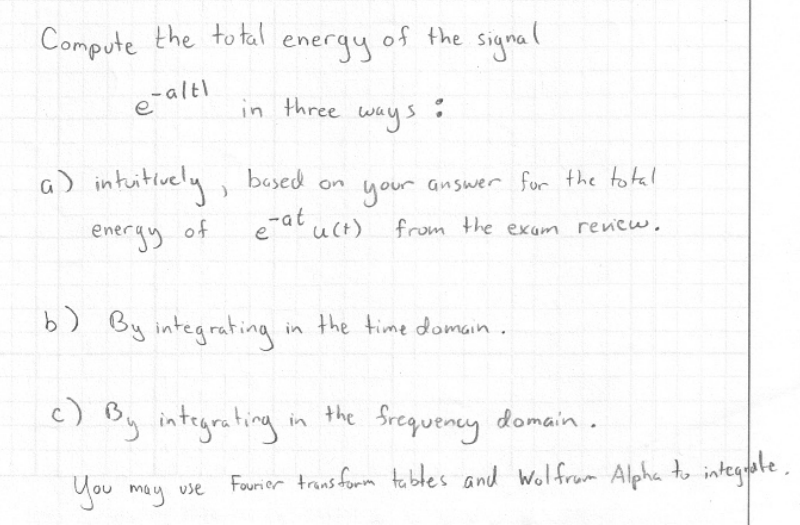 Compute the total energy of the signal
e^-a|t| in three ways :
a) intuitively, based on your answer for the total
energy of e^-at u(t) from the exam review.
b) By integrating in the time domain.
c) By integrating in the frequency domain.
You may use Fourier transform tables and Wolfram Alpha to integrate.